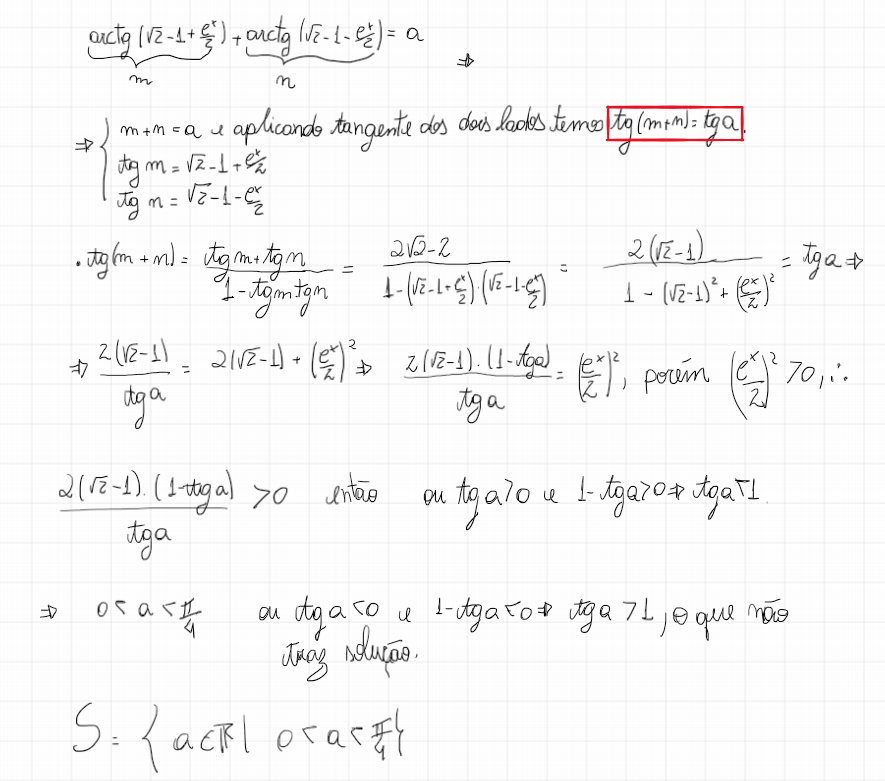 arctg (√2 - 1 + e^x/2) + arctg (√2 - 1 - e^x/2) = a ⇒
m n
⇒ { m + n = a e aplicando tangente dos dois lados temos tg(m+n) = tg a.
tg m = √2 - 1 + e^x/2
tg n = √2 - 1 - e^x/2
. tg(m + n) = (tg m + tg n)/(1 - tg m tg n) = (2√2 - 2)/(1 - (√2 - 1 + e^x/2).(√2 - 1 - e^x/2)) = 2(√2 - 1)/(1 - (√2 - 1)² + (e^x/2)²) = tg a ⇒
⇒ 2(√2 - 1)/tg a = 2(√2 - 1) + (e^x/2)² ⇒ 2(√2 - 1).(1 - tg a)/tg a = (e^x/2)², porém (e^x/2)² > 0, ∴
2(√2 - 1).(1 - tg a)/tg a > 0 então ou tg a > 0 e 1 - tg a > 0 ⇒ tg a < 1
⇒ 0 < a < π/4 ou tg a < 0 e 1 - tg a < 0 ⇒ tg a > 1, o que não
traz solução.
S = { a ∈ ℝ | 0 < a < π/4 }